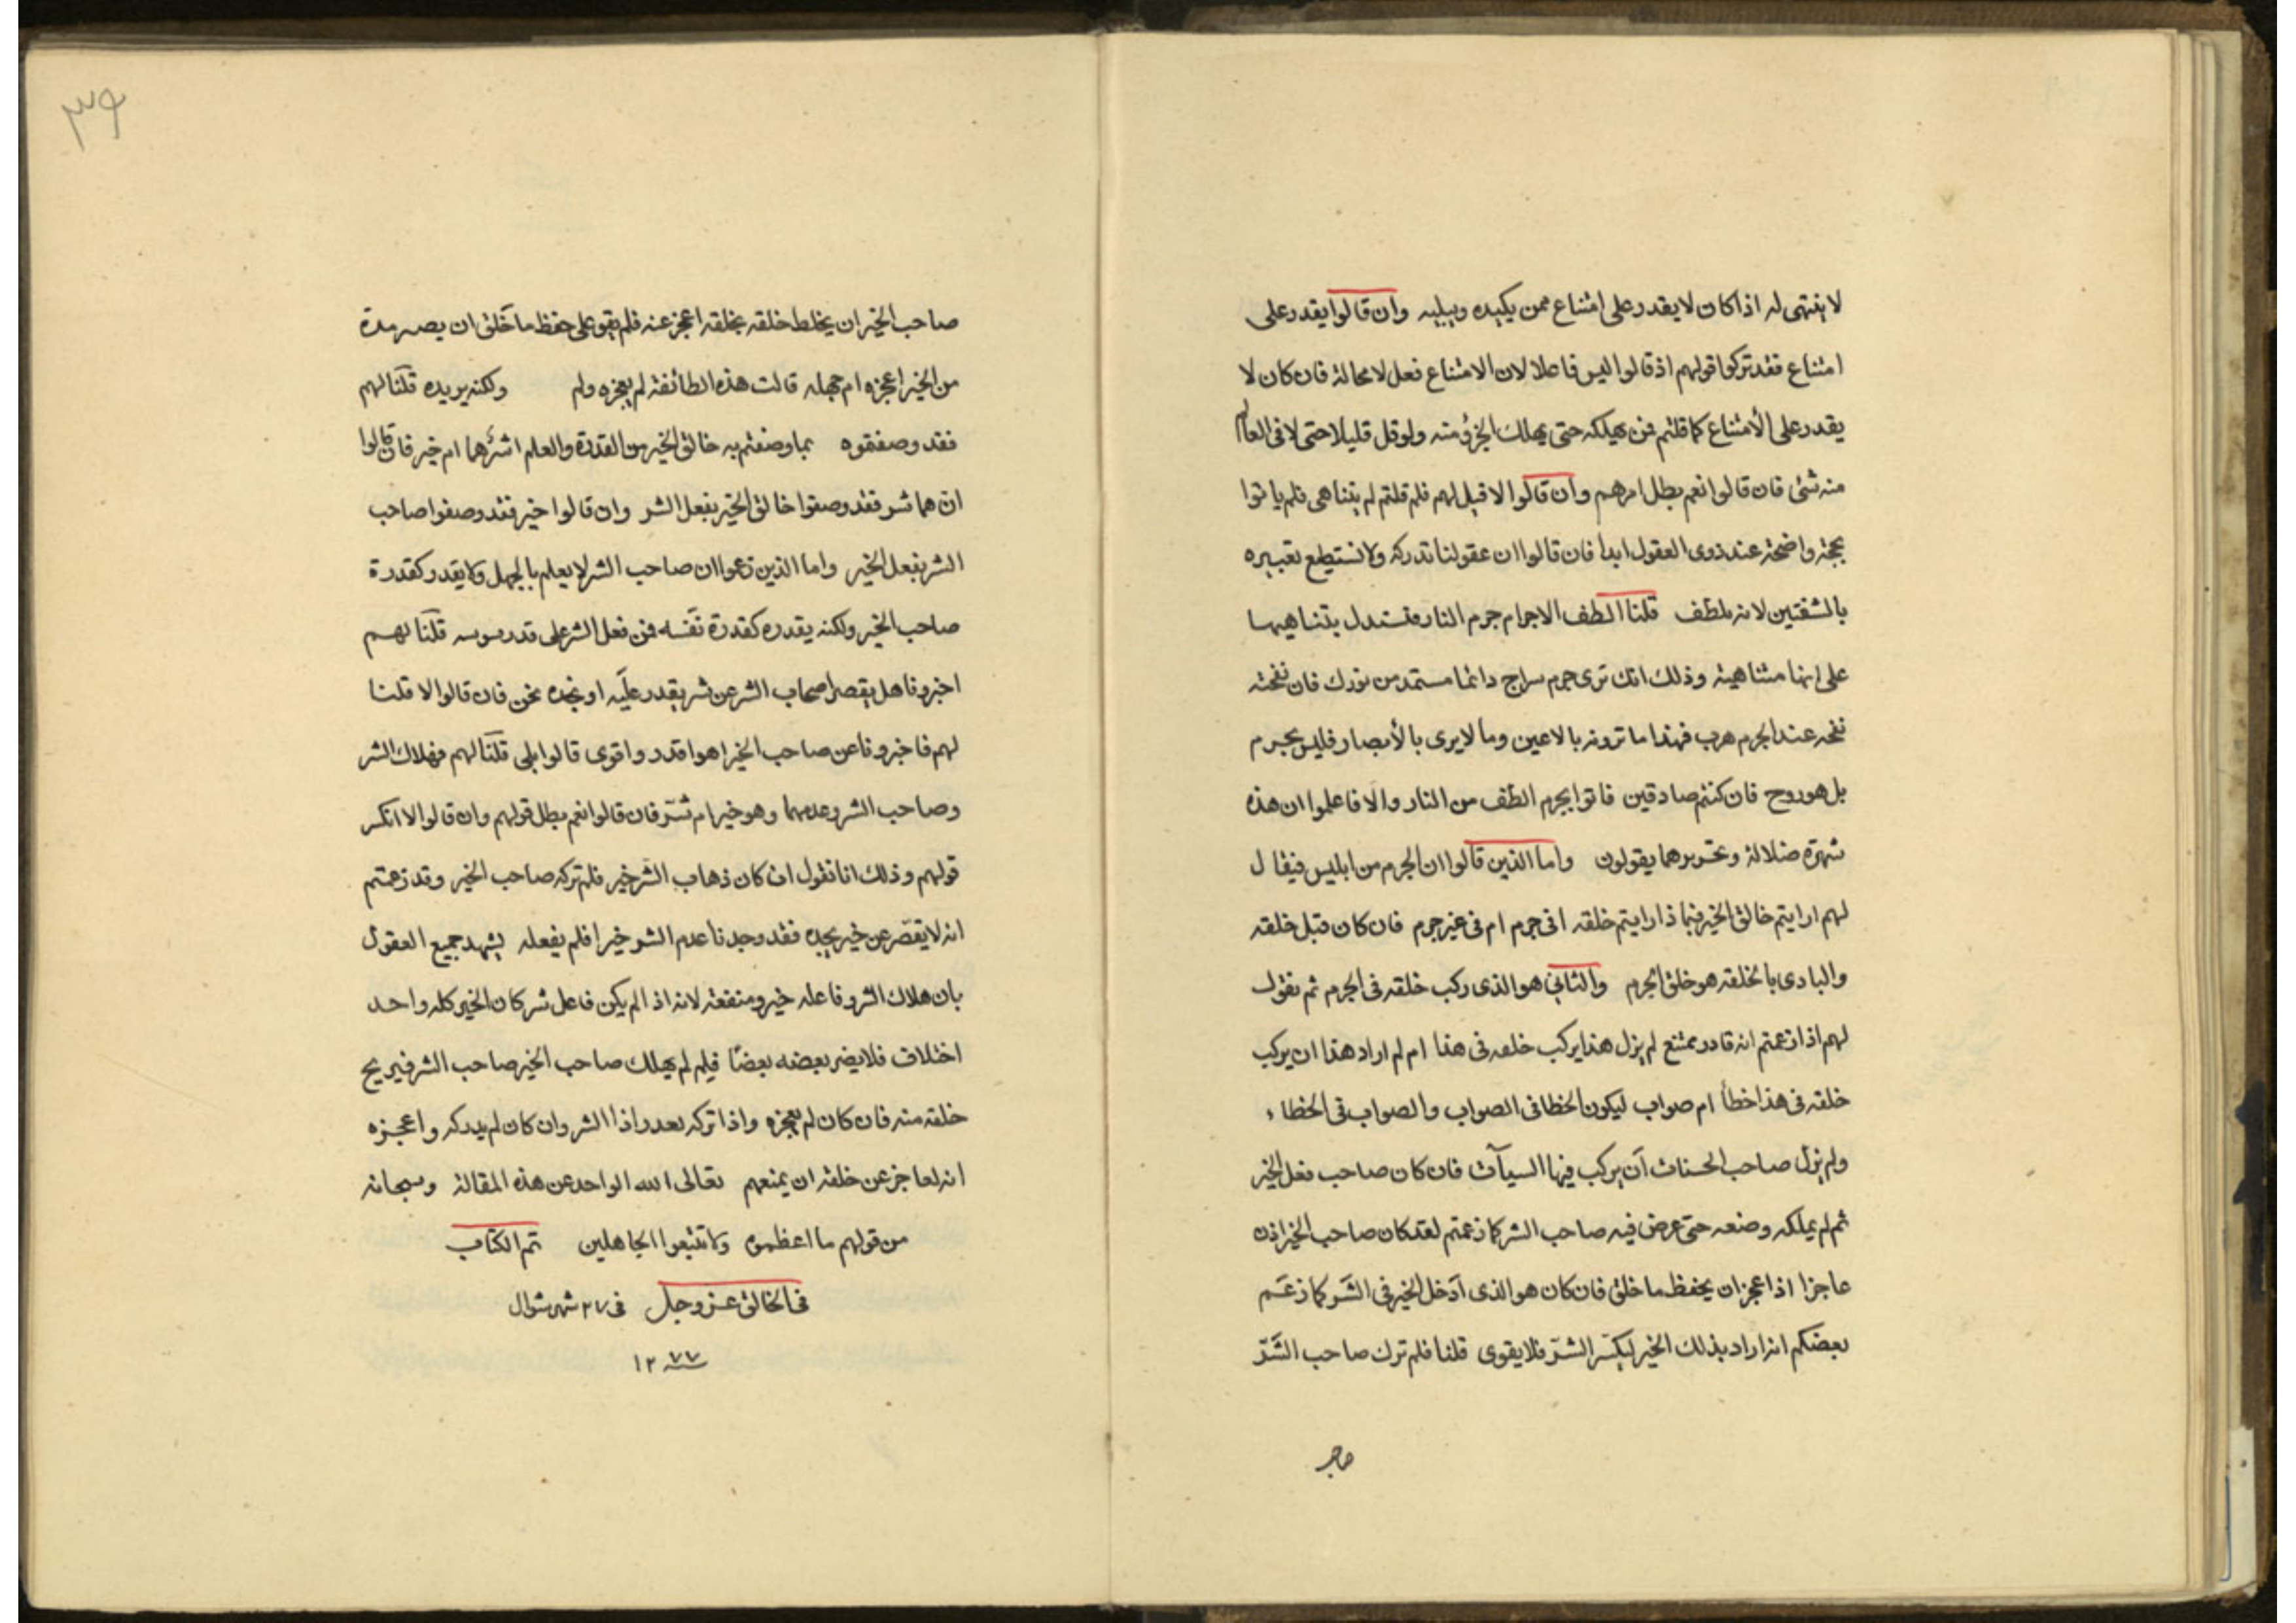 لا ينتهى له اذا كان لا يقدر على امتناع ممن يكيده ويبليه وان قالوا يقدر على
امتناع فقد تركوا قولهم اذ قالوا ليس فاعلا لان الامتناع فعل لا محالة فان كان لا
يقدر على الأمتناع كما قلتم فمن يهلكه حتى يهلك الجزؤ منه ولو قل قليلا حتى لا فى العالم
منه شئ فان قالوا نعم بطل امرهم وان قالوا لا قيل لهم فلم قلتم لم يتناهى فلم ياتوا
بحجة واضحة عند ذوى العقول ابدا فان قالوا ان عقولنا تدركه ولا نستطيع تعبيره
بالشفتين لانه يلطف قلنا الطف الاجرام جرم النار فنستدل بتناهيها
على انها متناهية وذلك انك ترى جرم سراج دائما مستمد من نورك فان نفخته
نفخه عند الجرم هرب فهذا ما ترونه بالاعين وما لا يرى بالأبصار فليس بجرم
بل هو روح فان كنتم صادقين فاتوا بجرم الطف من النار والا فاعلموا ان هذه
شهرة ضلالة هما يقولون واما الذين قالوا ان الجرم من ابليس فيقال
لهم ارايتم خالق الخير فبما ذا رايتم خلقه افى جرم ام فى غير جرم فان كان قبل خلقه
والبادى بالخلقة هو خلق الجرم والثانى هو الذى ركب خلقه فى الجرم ثم نقول
لهم اذا زعمتم انه قادر ممتنع لم يزل هذا يركب خلقه فى هذا ام لم اراد هذا ان يركب
خلقه فى هذا خطأ ام صواب ليكون الخطا فى الصواب والصواب فى الخطاء
ولم يزل صاحب الحسنات آن يركب فيها السيآت فان كان صاحب فعل الخير
ثم لم يملكه وضعه حتى عرض فيه صاحب الشر كما زعمتم لقد كان صاحب الخير اذن
عاجزا اذا عجز ان يحفظ ما خلق فان كان هو الذى آدخل الخير فى الشر كما زعم
بعضكم انه اراد بذلك الخير ليكسر الشر فلا يقوى قلنا فلم ترك صاحب الشر
صاحب
٣٩
صاحب الخير ان يخلط خلقه بخلقه اعجز عنه فلم يقو على حفظ ما خلق ان يصبر مدة
من الخير اعجزه ام جهله قالت هذه الطائفة لم يعجزه ولم ولكنه يريده قلنا لهم
فقد وصفتموه بما وصفتم به خالق الخير من القدرة والعلم اشر هما ام خير فان قالوا
ان هما شر فقد وصفوا خالق الخير بفعل الشر وان قالوا خير فقد وصفوا صاحب
الشر بفعل الخير واما الذين زعموا ان صاحب الشر لا يعلم بالجهل ولا يقدر كقدرة
صاحب الخير ولكنه يقدره كقدرة نفسه فمن فعل الشر على قدر قلنا لهم
اخبرونا هل يقصر اصحاب الشر عن شر يقدر عليه او نجده نحن فان قالوا لا قلنا
لهم فاخبرونا عن صاحب الخير اهو اقدر واقوى قالوا بلى قلنا لهم فهلاك الشر
وصاحب الشر وعدمهما وهو خير ام شر فان قالوا نعم بطل قولهم وان قالوا لا انكسر
قولهم وذلك انا نقول ان كان ذهاب الشر خير فلم تركه صاحب الخير وقد زعمتم
انه لا يقصر عن خير يجده فقد وجدنا عدم الشر خيرا فلم يفعله يشهد جميع العقول
بان هلاك الشر وفاعله خير ومنفعة لانه اذ الم يكن فاعل شر كان الخير كله واحد
اختلاف فلا يضر بعضه بعضا فيلم لم يهلك صاحب الخير صاحب الشر فيريح
خلقه منه فان كان لم يعجزه واذا تركه بعد راذا الشر وان كان لم يدركه واعجزه
انه لعاجز عن خلقه ان يمنعهم تعالى الله الواحد عن هذه المقالة وسبحانه
من قولهم ما اعظمه ولا تتبعوا الجاهلين تم الكتاب
فى الخالق عز وجل فى ٢٧ شهر شوال
سنة ١٢٧٧